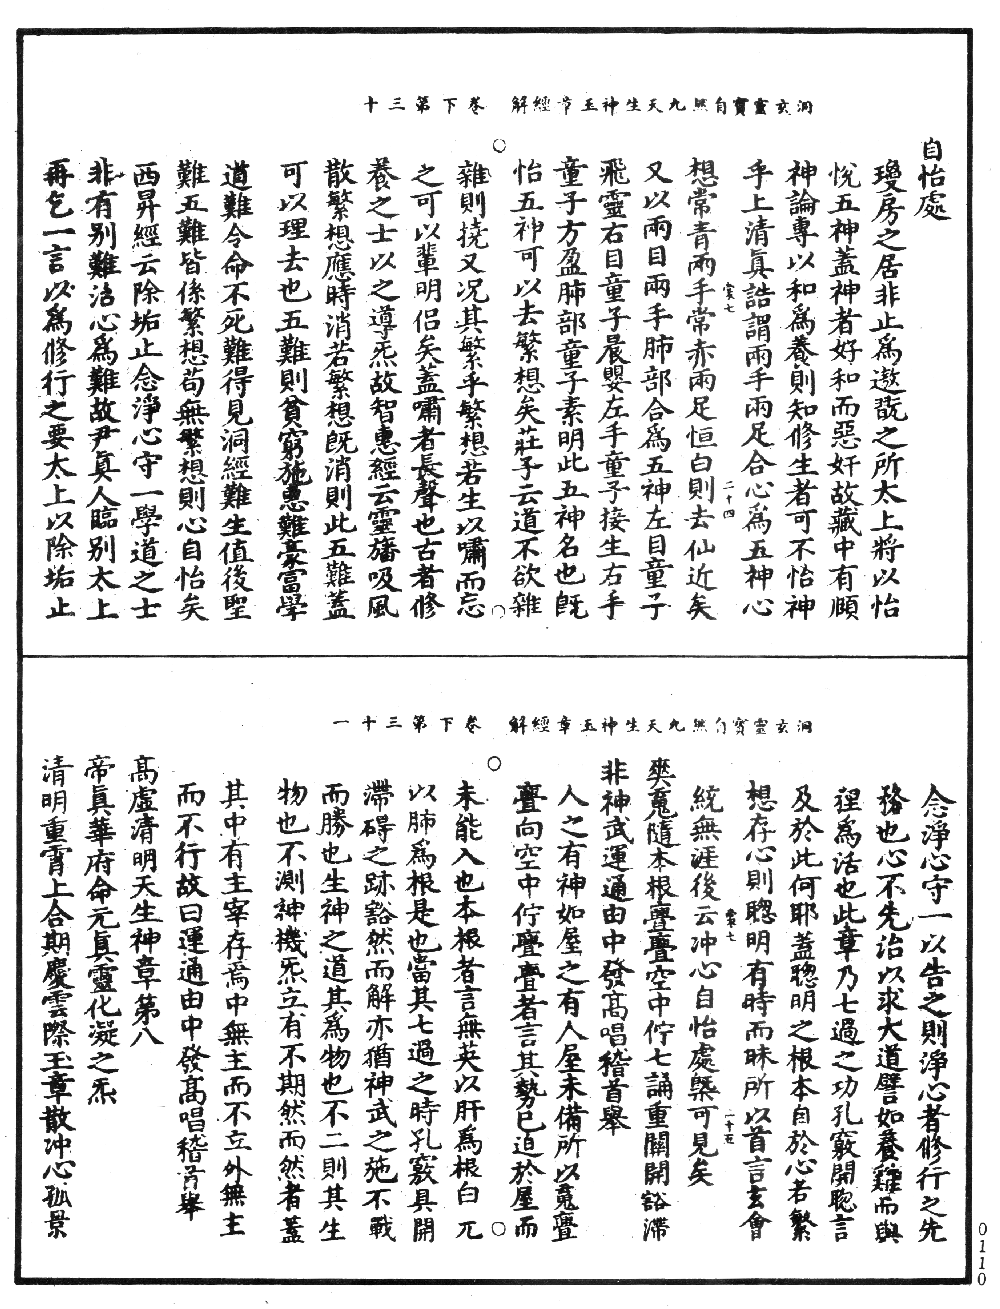 洞玄靈寶自然九天生神玉章經解　卷下第三十
自怡處
瓊房之居非止爲遨翫之所太上將以怡
悅五神蓋神者好和而惡奸故藏中有頤
神論專以和爲養則知修生者可不怡神
乎上清眞誥謂兩手兩足合心爲五神心
想常青兩手常赤兩足恒白則去仙近矣
裳七
二十四
又以兩目兩手肺部合爲五神左目童子
飛靈右目童子晨嬰左手童子接生右手
童子方盈肺部童子素明此五神名也旣
怡五神可以去繁想矣莊子云道不欲雜
雜則撓又况其繁乎繁想若生以嘯而忘
之可以輩明侣矣蓋嘯者長聲也古者修
養之士以之導炁故智惠經云靈旛吸風
散繁想應時消若繁想旣消則此五難蓋
可以理去也五難則貧窮施惠難豪富學
道難令命不死難得見洞經難生值後聖
難五難皆係繁想苟無繁想則心自怡矣
西昇經云除垢止念淨心守一學道之士
非有别難治心爲難故尹眞人臨别太上
再乞一言以爲修行之要太上以除垢止
洞玄靈寶自然九天生神玉章經解　卷下第三十一
念淨心守一以告之則淨心者修行之先
務也心不先治以求大道譬如養雞而與
狸爲活也此章乃七過之功孔竅開聰言
及於此何耶蓋聰明之根本自於心若繁
想存心則聰明有時而昧所以首言玄會
統無涯後云冲心自怡處槩可見矣
裳七
二十五
爽魂隨本根亹亹空中佇七誦重關開豁滯
非神武運通由中發高唱稽首舉
人之有神如屋之有人屋未備所以魂亹
亹向空中佇亹亹者言其勢已迫於屋而
未能入也本根者言無英以肝爲根白元
以肺爲根是也當其七過之時孔竅具開
滯碍之跡豁然而解亦猶神武之施不戰
而勝也生神之道其爲物也不二則其生
物也不測神機炁立有不期然而然者蓋
其中有主宰存焉中無主而不立外無主
而不行故曰運通由中發高唱稽首舉
高虛清明天生神章第八
帝眞華府命元眞靈化凝之炁
清明重霄上合期慶雲際玉章散冲心孤景
0110